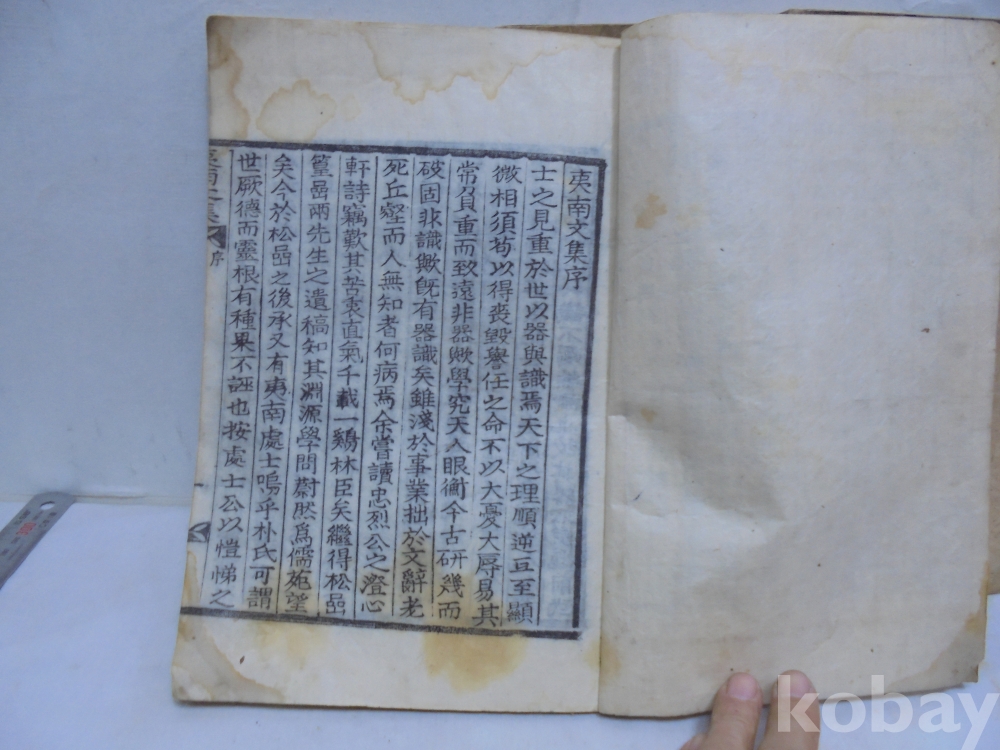 夷南文集序
士之見重於世以器與識焉天下之理順逆亘至顯
微相須苟以得喪毀譽任之命不以大憂大辱易其
常負重而致遠非器歟學究天人眼衡今古研幾而
破固非識歟旣有器識矣雖淺於事業拙於文辭老
死丘壑而人無知者何病焉余嘗讀忠烈公之澄心
軒詩竊歎其苦衷直氣千載一鷄林臣矣繼得松嵒
篁嵒兩先生之遺稿知其淵源學問蔚然爲儒苑望
矣今於松嵒之後承又有夷南處士嗚乎朴氏可謂
世厥德而靈根有種果不誣也按處士公以愷悌之
夷南文集
序
kobay